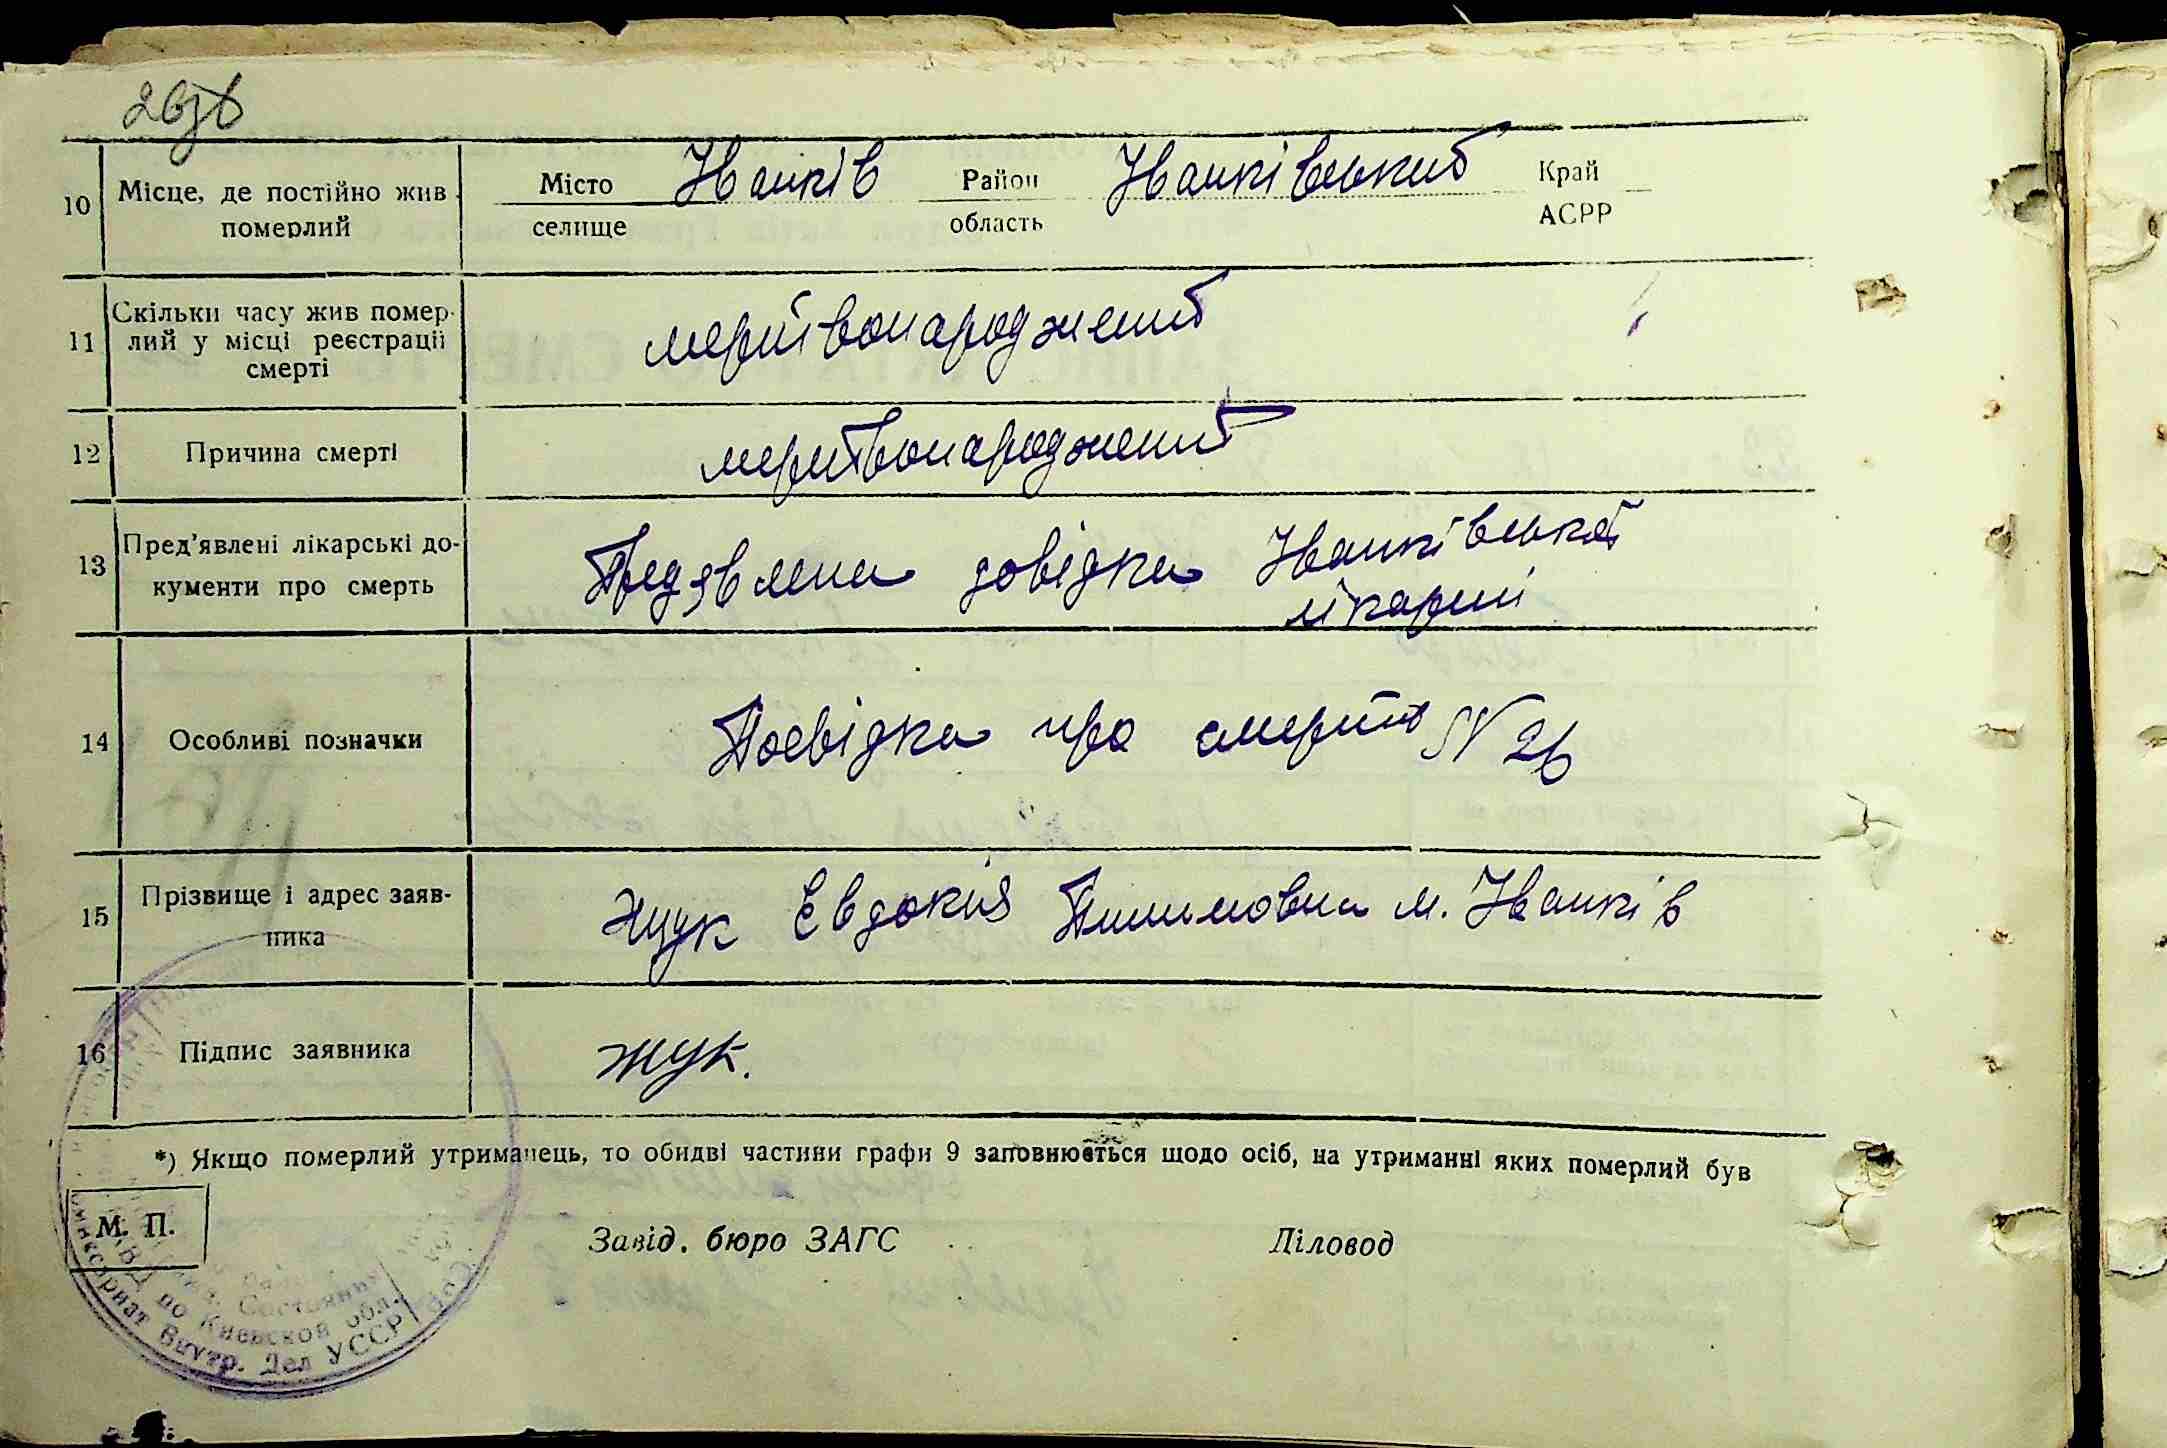 26зв
10 Місце, де постійно жив померлий Місто селище Іванків Район область Іванківський Край АСРР
11 Скільки часу жив померлий у місці реєстрації смерті мертвонароджений
12 Причина смерті мертвонароджений
13 Пред'явлені лікарські документи про смерть Предявлена довідка Іванківської
лікарні
14 Особливі позначки Посвідка про смерть N 26
15 Прізвище і адрес заявника Жук Євдокія Пилиповна м. Іванків
16 Підпис заявника Жук.
*) Якщо померлий утриманець, то обидві частини графи 9 заповнюється щодо осіб, на утриманні яких померлий був
М. П.
Завід. бюро ЗАГС Діловод
Состояния
по Киевской обл.
Комиссариат Внутр. Дел УССР